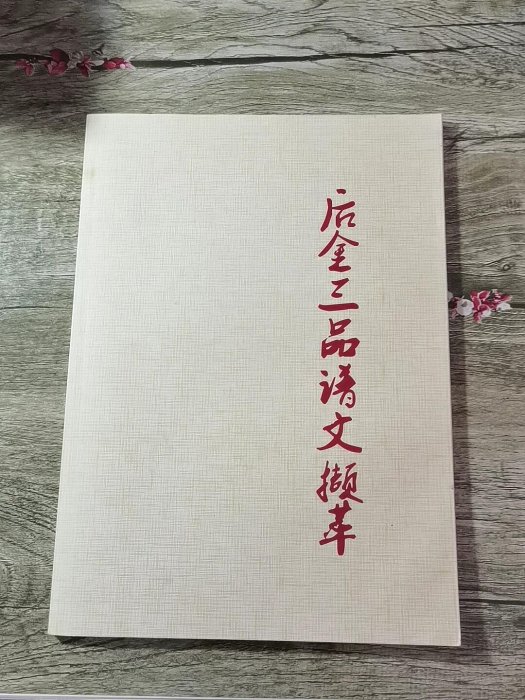 后金三品谱文撷萃